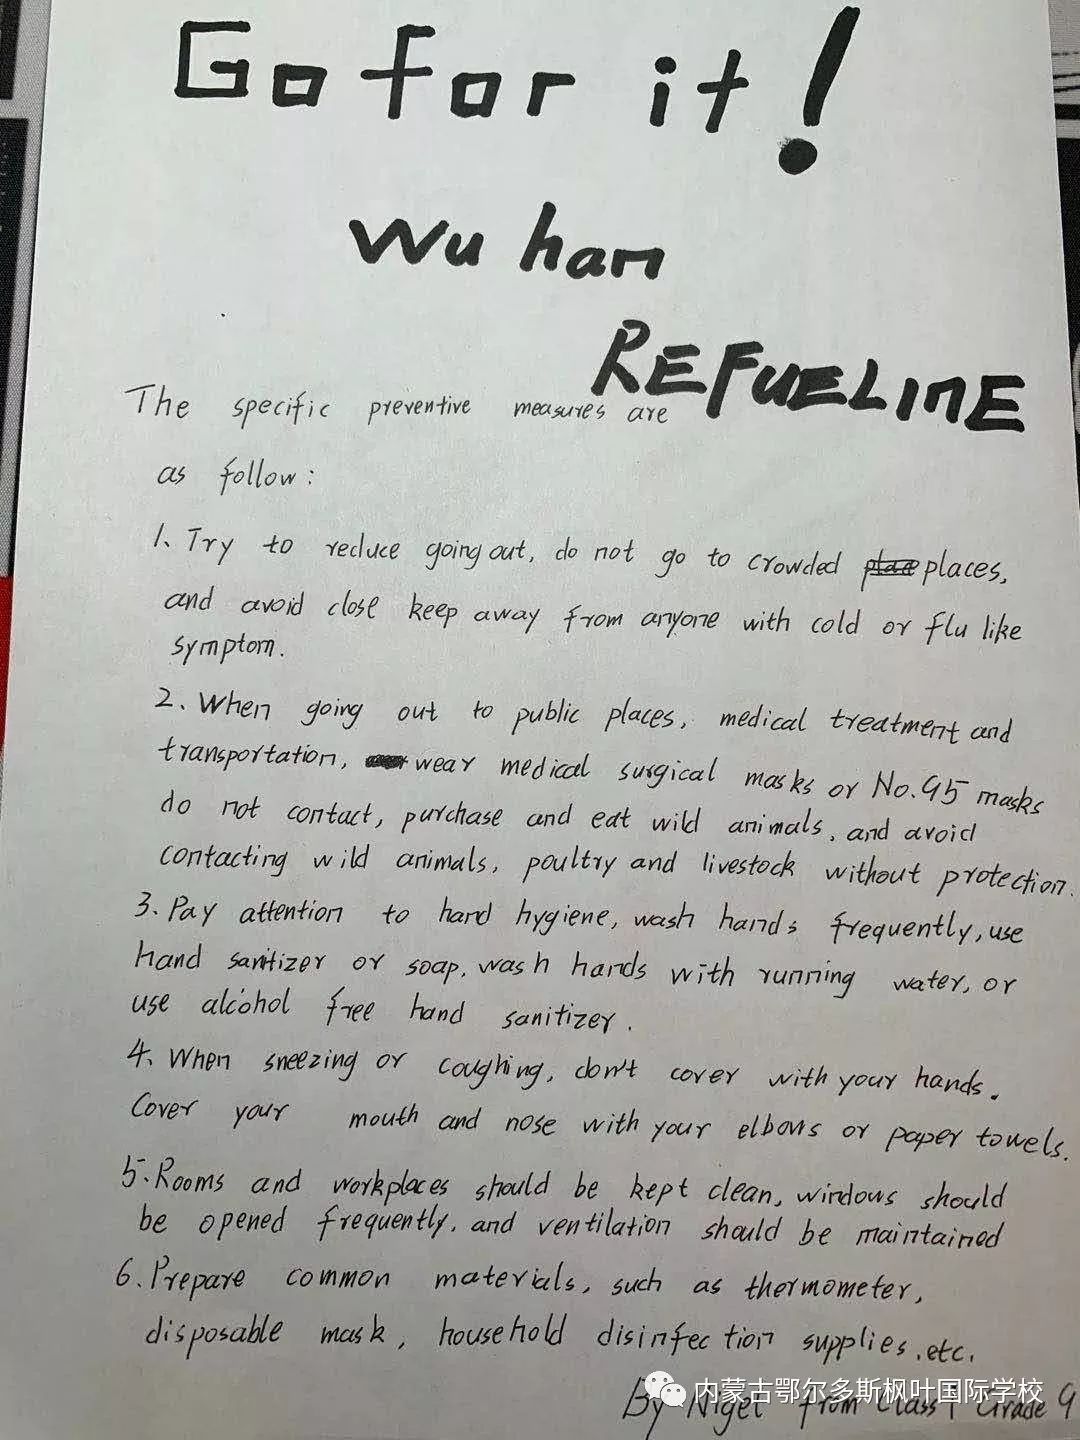 Go for it!
Wu han
REFUELINE
The specific preventive measures are
as follow:
1. Try to reduce going out, do not go to crowded places,
and avoid close keep away from anyone with cold or flu like
symptom.
2. When going out to public places, medical treatment and
transportation, wear medical surgical masks or No.95 masks
do not contact, purchase and eat wild animals, and avoid
contacting wild animals, poultry and livestock without protection.
3. Pay attention to hand hygiene, wash hands frequently, use
hand sanitizer or soap, wash hands with running water, or
use alcohol free hand sanitizer.
4. When sneezing or coughing, don't cover with your hands.
Cover your mouth and nose with your elbows or paper towels.
5. Rooms and workplaces should be kept clean, windows should
be opened frequently, and ventilation should be maintained
6. Prepare common materials, such as thermometer,
disposable mask, household disinfection supplies, etc.
By Nigel from Class 1 Grade 9
内蒙古鄂尔多斯枫叶国际学校